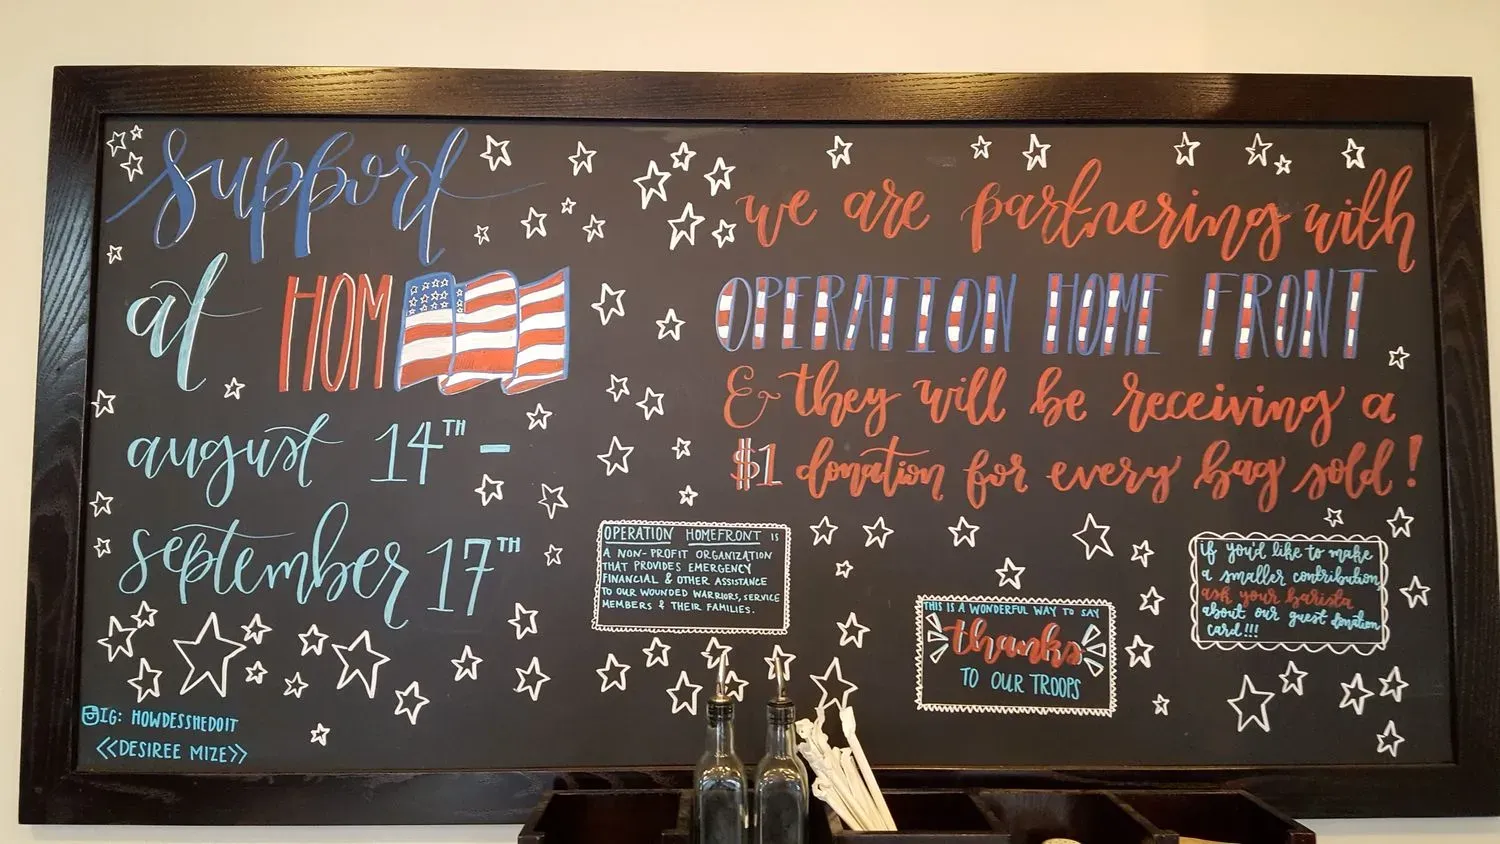 support
at HOM
august 14TH -
september 17TH
we are partnering with
OPERATION HOME FRONT
& they will be receiving a
$1 donation for every bag sold!
OPERATION HOMEFRONT IS
A NON-PROFIT ORGANIZATION
THAT PROVIDES EMERGENCY
FINANCIAL & OTHER ASSISTANCE
TO OUR WOUNDED WARRIORS, SERVICE
MEMBERS & THEIR FAMILIES.
THIS IS A WONDERFUL WAY TO SAY
thanks
TO OUR TROOPS
if you'd like to make
a smaller contribution
ask your barista
about our guest donation
card!!!
IG: HOWDESSHEDOIT
<<DESIREE MIZE>>